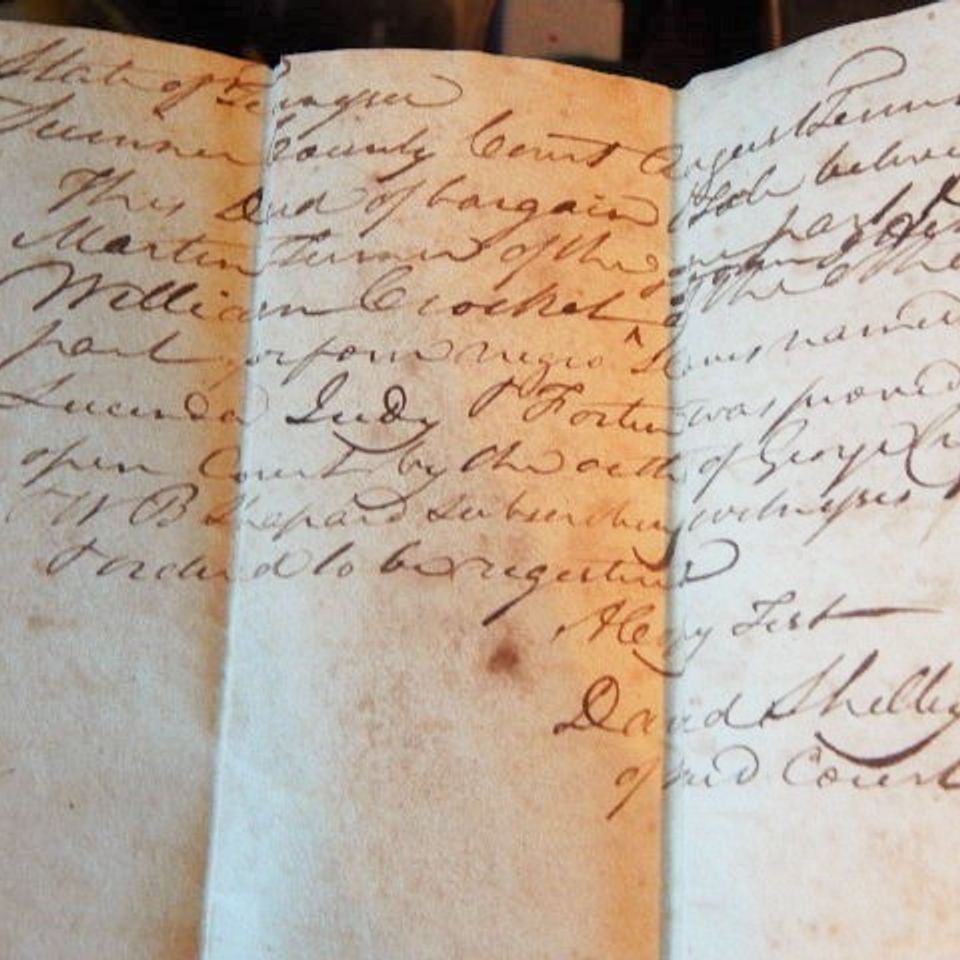 State of Tennessee
Sumner County Court August Term
This Deed of bargain & Sale betwe
Martin Turner of the one part &
William Crocket ^ of the other
part for four negro Slaves named
Lucinda Judy & Fortin was proved
open Court by the oath of George
W B Shapard Subscribing witnesses
& ordered to be registered
A Copy Test
David Shelby
of said Court